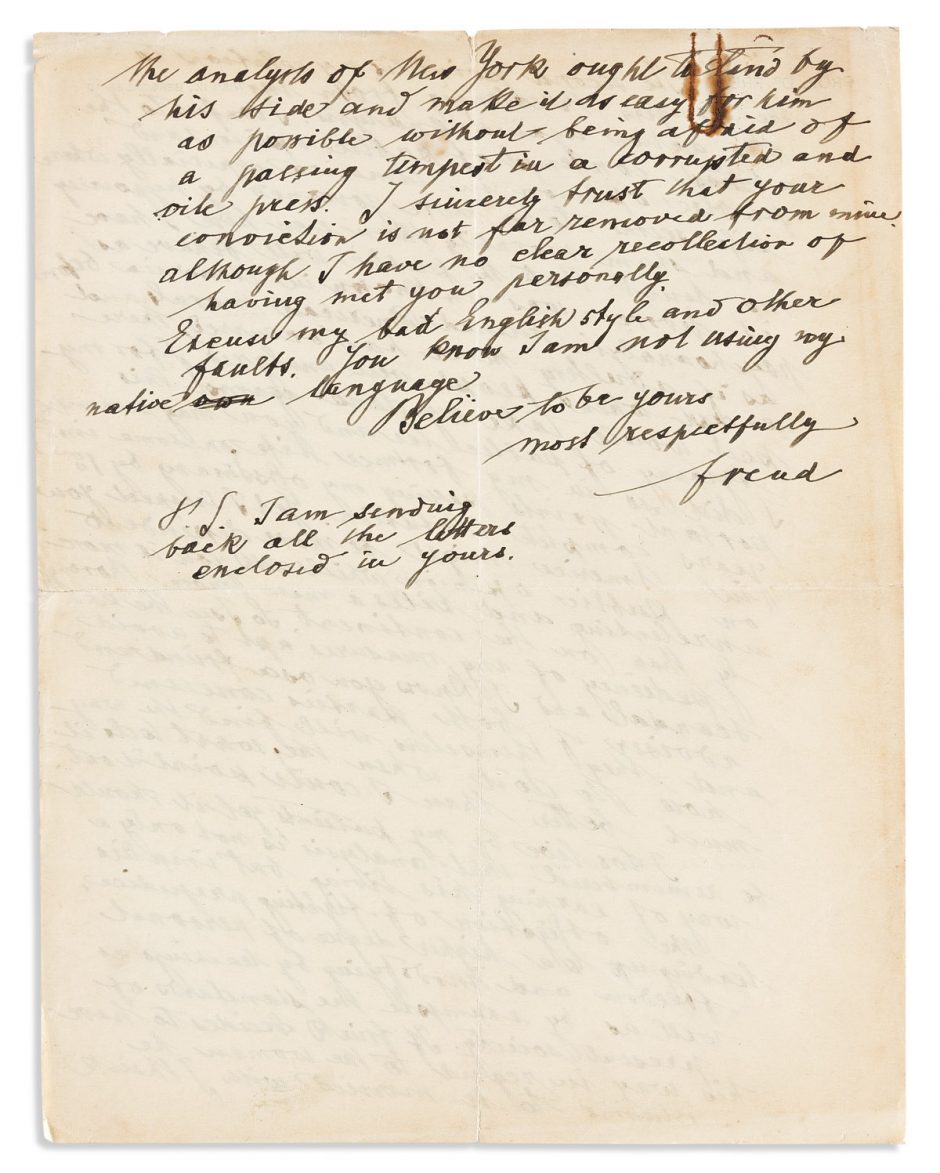 the analysts of New York ought to stand by
his side and make it as easy for him
as possible without being afraid of
a passing tempest in a corrupted and
vile press. I sincerely trust that your
conviction is not far removed from mine
although I have no clear recollection of
having met you personally.
Excuse my bad English style and other
faults. You know I am not using my
native own language
Believe to be yours
most respectfully
Freud
PS I am sending
back all the letters
enclosed in yours.